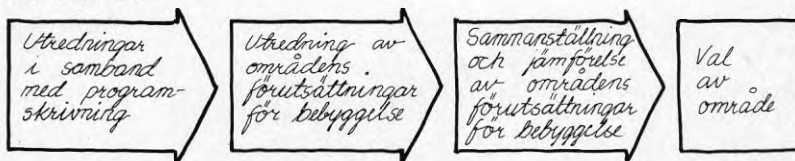 Utredningar
i samband
med program-
skrivning
Utredning av
områdens
förutsättningar
för bebyggelse
Sammanställning
och jämförelse
av områdens
förutsättningar
för bebyggelse
Val
av
område